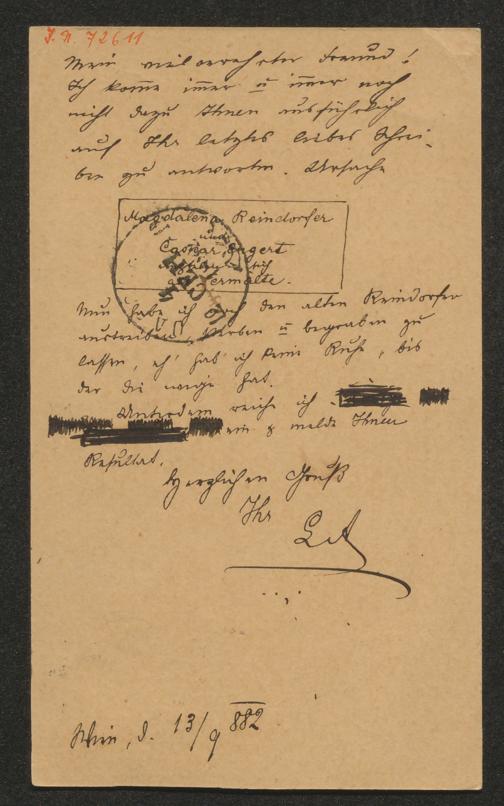 I. N. 72611
Mein vielverehrter Freund!
Ich komme immer u immer noch
nicht dazu Ihnen ausführlich
auf Ihr letztes liebes Schrei-
ben zu antworten. Ursache
Magdalena Reindorfer
und
Caspar Engert
Vermälte.
Nun habe ich den alten Reindorfer
sterben u begraben zu
lassen, eh' hab' ich keine Ruhe, bis
der die ewige hat.
Unterdem reiche ich
ein & melde Ihnen
Resultat.
Herzlichen Gruß
Ihr
LA
Wien, d. 13/9 882